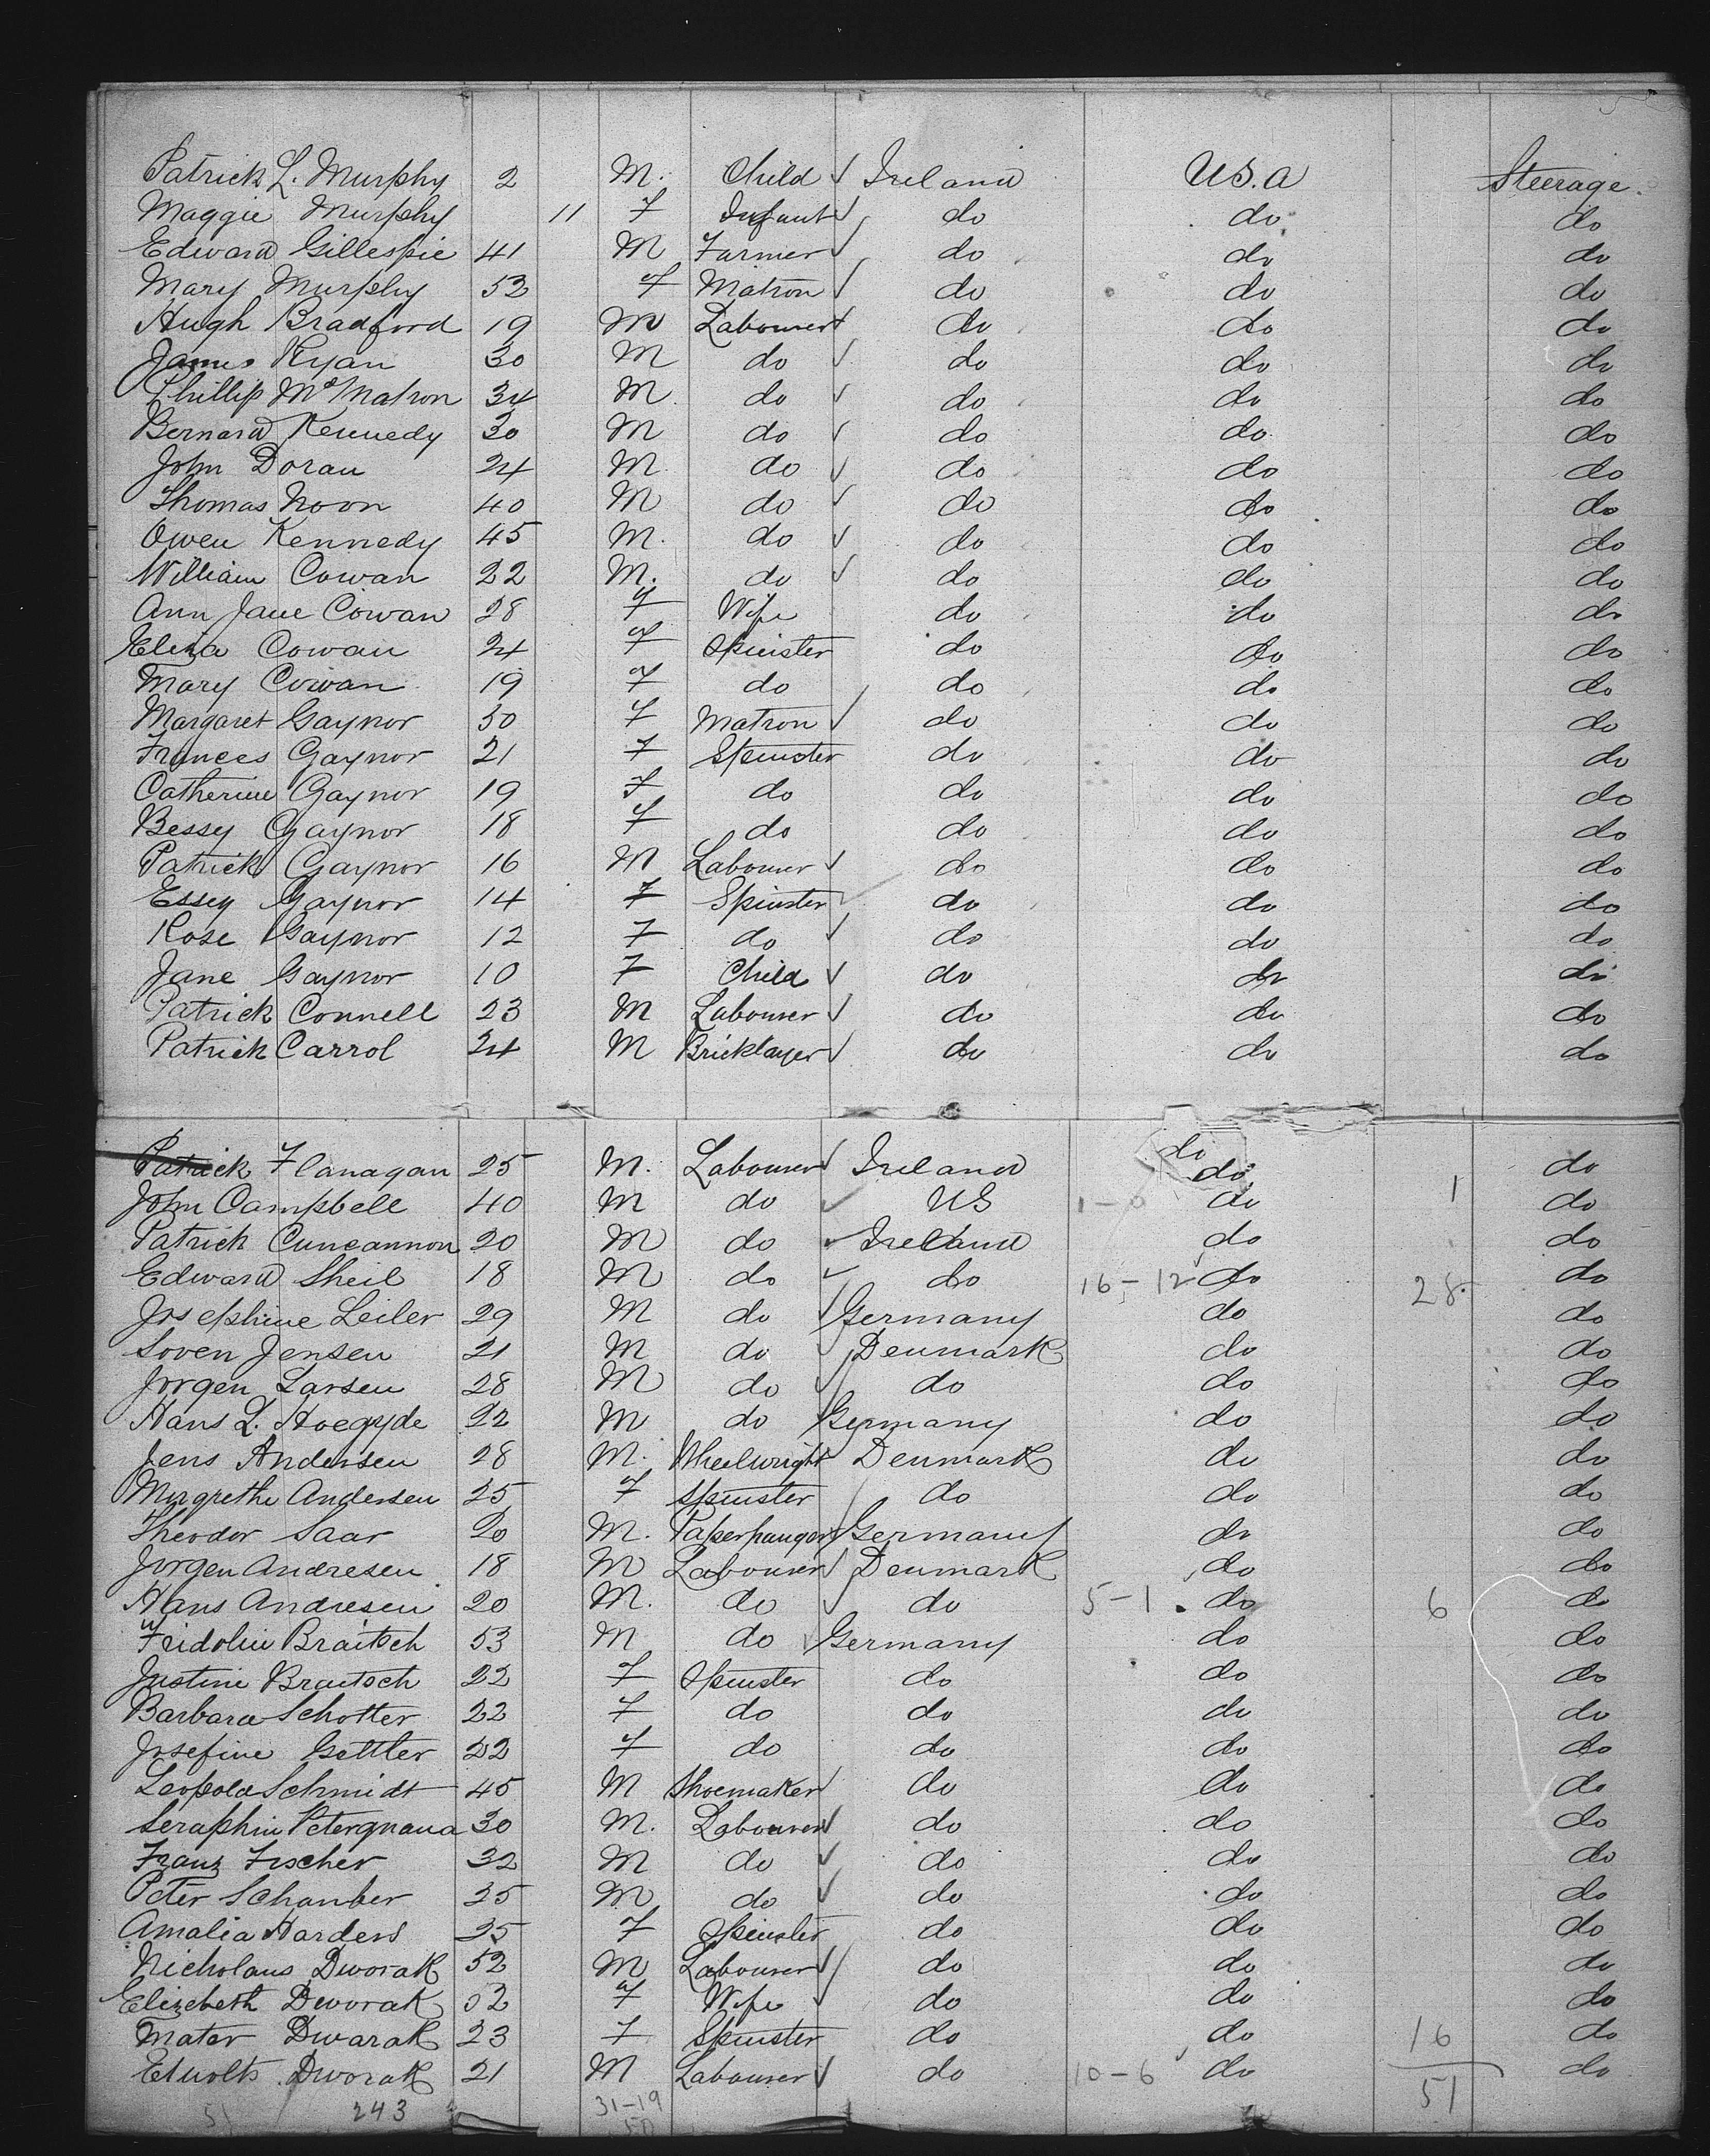 Patrick L. Murphy 2 M. Child ✓ Ireland U.S.a Steerage.
Maggie Murphy 11 F Infant ✓ do do do
Edward Gillespie 41 M Farmer ✓ do do do
Mary Murphy 52 F Matron ✓ do do do
Hugh Bradford 19 M Labourer ✓ do do do
James Ryan 30 M do ✓ do do do
Phillip Mc Matron 34 M do ✓ do do do
Bernard Kennedy 30 M do ✓ do do do
John Doran 24 M do ✓ do do do
Thomas Noon 40 M do ✓ do do do
Owen Kennedy 45 M. do ✓ do do do
William Cowan 22 M. do ✓ do do do
Ann Jane Cowan 28 F Wife do do do
Eliza Cowan 24 F Spinster do do do
Mary Cowan 19 F do do do do
Margaret Gaynor 50 F Matron ✓ do do do
Frances Gaynor 21 F Spinster do do do
Catherine Gaynor 19 F do do do do
Bessy Gaynor 18 F do do do do
Patrick Gaynor 16 M Labourer ✓ do do do
Essey Gaynor 14 F Spinster ✓ do do do
Rose Gaynor 12 F do ✓ do do do
Jane Gaynor 10 F Child ✓ do do do
Patrick Connell 23 M Labourer ✓ do do do
Patrick Carrol 24 M Bricklayer ✓ do do do
do
Patrick Flanagan 25 M. Labourer ✓ Ireland do do
John Campbell 40 M do ✓ US 1-0 do 1 do
Patrick Cuncannon 20 M do ✓ Ireland do do
Edward Sheil 18 M do ✓ do 16-12 do 28. do
Josephine Leiler 29 M do ✓ Germany do do
Soven Jensen 21 M do ✓ Denmark do do
Jorgen Larsen 28 M do ✓ do do do
Hans L. Hoegyde 22 M do Germany do do
Jens Andersen 28 M. Wheelwright Denmark do do
Margrethe Andersen 25 F Spinster do do do
Theodor Saar 20 M. Paperhanger Germany do do
Jorgen Andresen 18 M Labourer ✓ Denmark do do
Hans Andresen 20 M. do ✓ do 5-1 do 6 do
Fridolin Braitsch 53 M do Germany do do
Justine Braitsch 22 F Spinster do do do
Barbara Schotter 22 F do do do do
Josefine Gettler 22 F do do do do
Leopold Schmidt 45 M Shoemaker ✓ do do do
Seraphin Petergnana 30 M. Labourer ✓ do do do
Franz Fischer 32 M do ✓ do do do
Peter Schamber 25 M do ✓ do do do
Amalia Harders 25 F Spinster do do do
Nicholaus Dworak 52 M Labourer ✓ do do do
Elizebeth Dworak 52 F Wife ✓ do do do
Mater Dwarak 23 F Spinster do do 16 do
Dworak 21 M Labourer ✓ do 10-6 do do
51 243 31-19 51
50